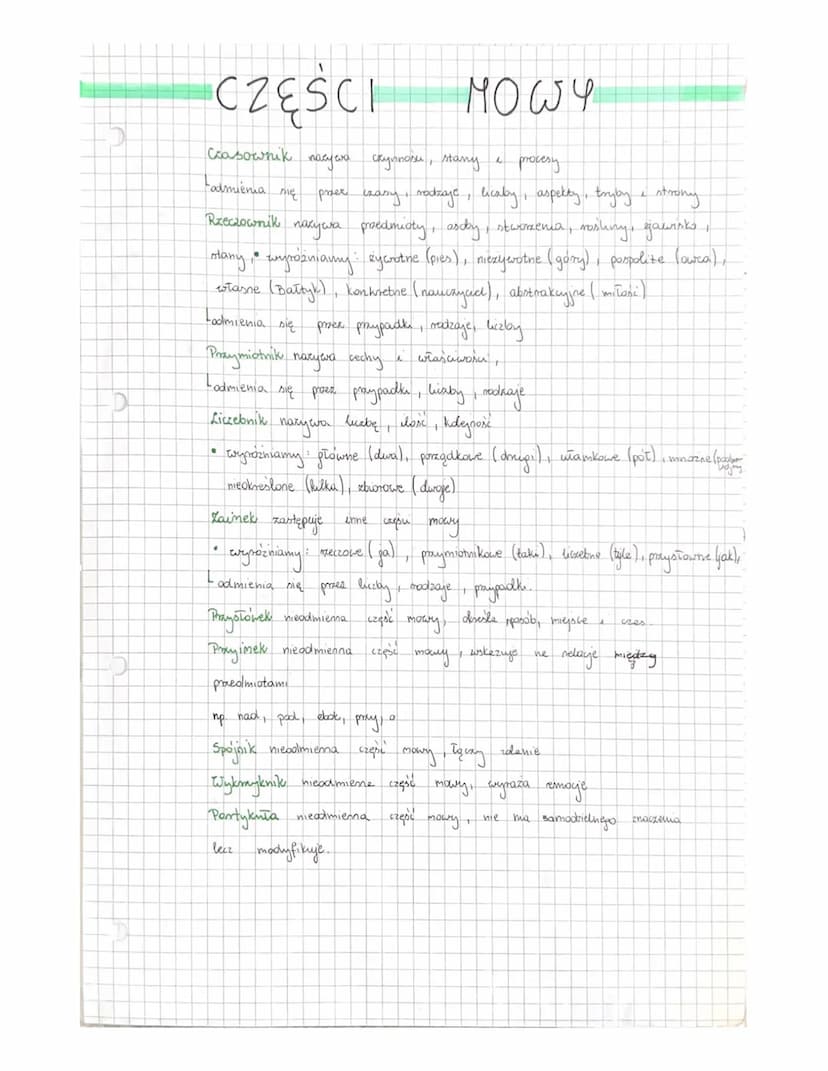 CZĘŚCI MOWY
Czasownik nazywa czynności, stany i procesy
odmienia się przez czasy, rodzaje, liczby, aspekty, tryby i strony
Rzeczownik nazywa przedmioty, osoby, stworzenia, rośliny, zjawiska,
stany, • wyróżniamy: żywotne (pies), nieżywotne (góry), pospolite (owca),
własne (Bałtyk), konkretne (nauczyciel), abstrakcyjne (miłość)
odmienia się przez przypadki, rodzaje, liczby
Przymiotnik nazywa cechy i właściwości,
odmienia się przez przypadki, liczby, rodzaje
Liczebnik nazywa liczbę, ilość, kolejność
• wyróżniamy: główne (dwa), porządkowe (drugi), ułamkowe (pół), mnożne
nieokreślone (kilka), zbiorowe (dwoje)
Zaimek zastępuje inne części mowy
• wyróżniamy: rzeczowe (ja), przymiotnikowe (taki), liczebne (tyle), przysłowne (jak),
odmienia się przez liczby, rodzaje, przypadki.
Przysłówek nieodmienna część mowy, określa sposób, miejsce i czas
Przyimek nieodmienna część mowy, wskazuje na relacje między
przedmiotami
np. nad, pod, obok, przy, o
Spójnik nieodmienna część mowy, łączy zdanie
Wykrzyknik nieodmienna część mowy, wyraża emocje
Partykuła nieodmienna część mowy, nie ma samodzielnego znaczenia
lecz modyfikuje.